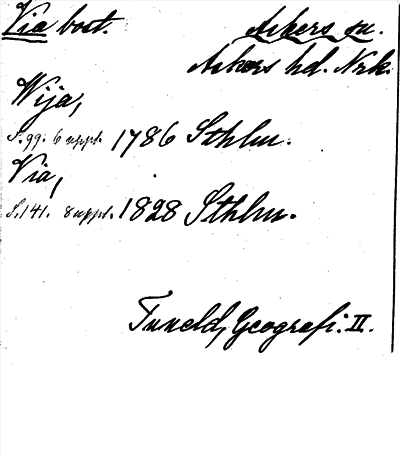 Via bost. Askers sn.
Askers hd. Nrk.
Wija,
S. 99. 6 uppl. 1786 Sthlm.
Via,
S. 141. 8 uppl. 1828 Sthlm.
Tuneld, Geografi. II.